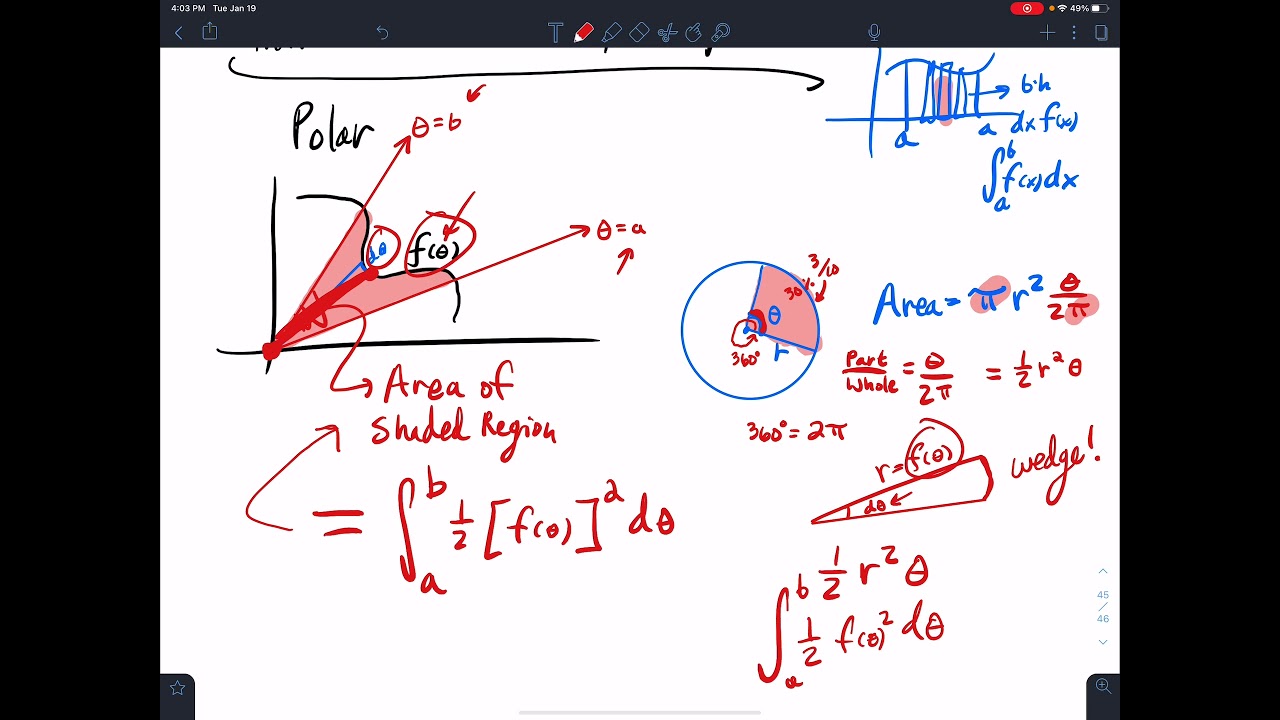 4:03 PM Tue Jan 19
49%
T
Polar
θ = b
θ = a
dθ
f(θ)
Area of
Shaded Region
= ∫_a^b 1/2 [f(θ)]² dθ
b·h
a a dx f(x)
∫_a^b f(x) dx
3/10
30%
θ
360°
r
Area = π r² θ/2π
Part/Whole = θ/2π = 1/2 r² θ
360° = 2π
r = f(θ)
dθ
wedge!
1/2 r² θ
∫_a^b 1/2 f(θ)² dθ
45
/
46